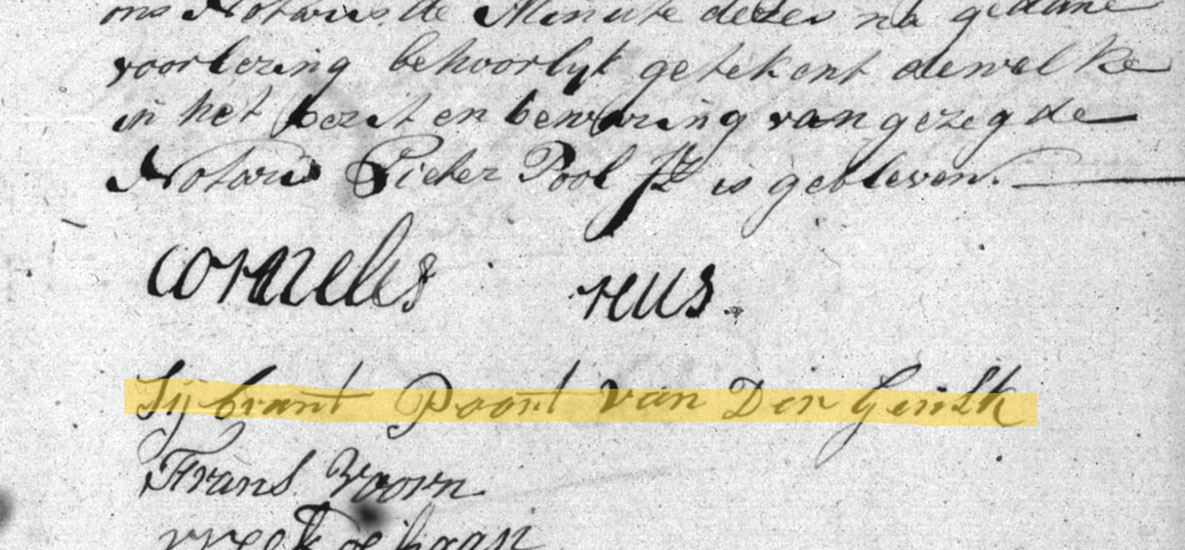 ons Notaris de Minute dezes na gedane
voorlezing behoorlyk getekent dewelke
in het bezit en bewaring van gezegde
Notaris Pieter Pool Jz is gebleven.
Cornelis reus.
Sijbrant Poort van Der
Frans Voorn
de haan